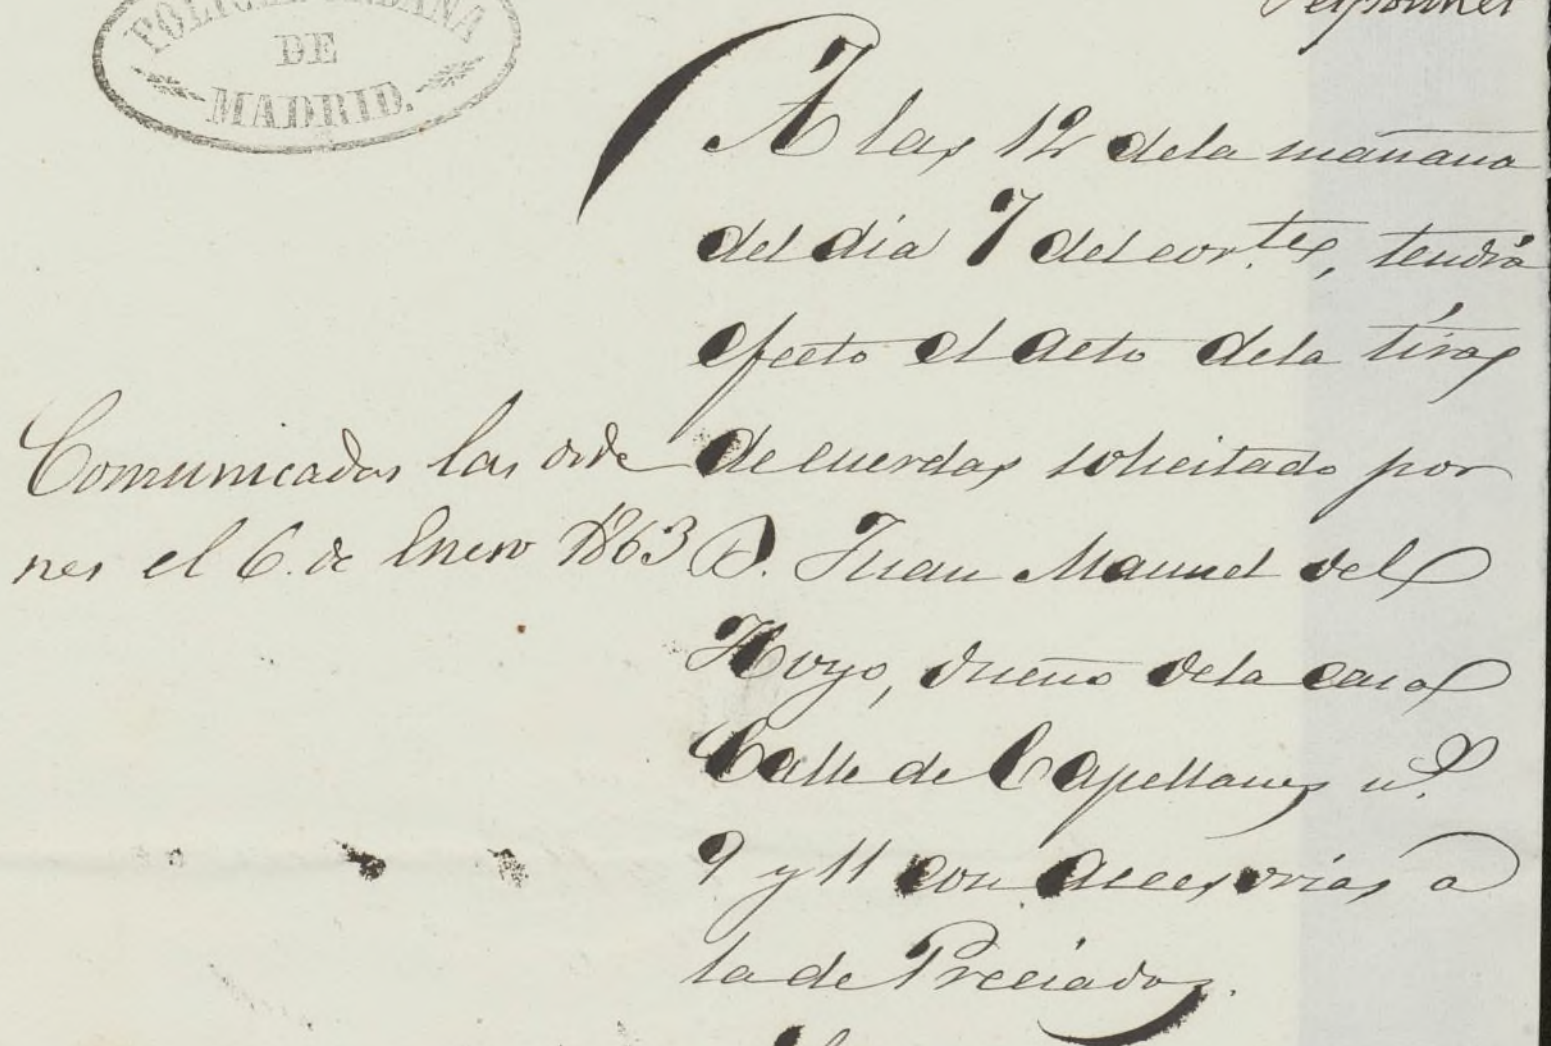 POLICIA URBANA
DE
MADRID.
A las 12 dela mañana
del dia 7 del cor.tes, tendrá
efecto el acto dela tiras
de cuerdas solicitado por
D. Juan Manuel del
Hoyo, dueño dela casa
Calle de Capellanes nº.
9 y 11 con accesorias a
la de Preciados.
Comunicadas las orde
nes el 6. de Enero 1863